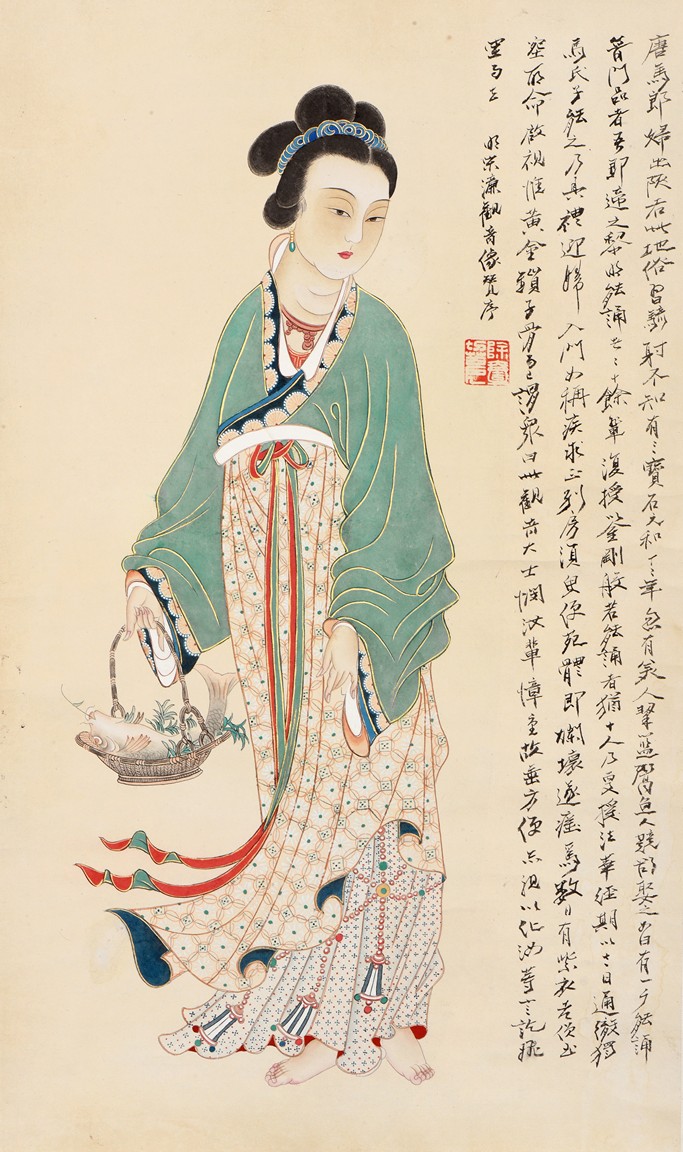 唐馬郎婦出陝右此地俗習騎射不知有三寶名元和十二年忽有美人挈籃鬻魚人競欲娶之女曰有一夕能誦
普門品者吾即適之黎明能誦者二十餘輩復授金剛般若能誦者猶十人乃更授法華經期以三日通徹獨
馬氏子能之乃具禮迎婦入門女稱疾求止別房須臾便死體即爛壞遂瘞焉數日有紫衣老僧至
瘞所命啟視惟黃金鎖子骨而已謂眾曰此觀音大士憫汝輩障重故垂方便示現以化汝等言訖飛
空而去 明宋濂觀音像贊序